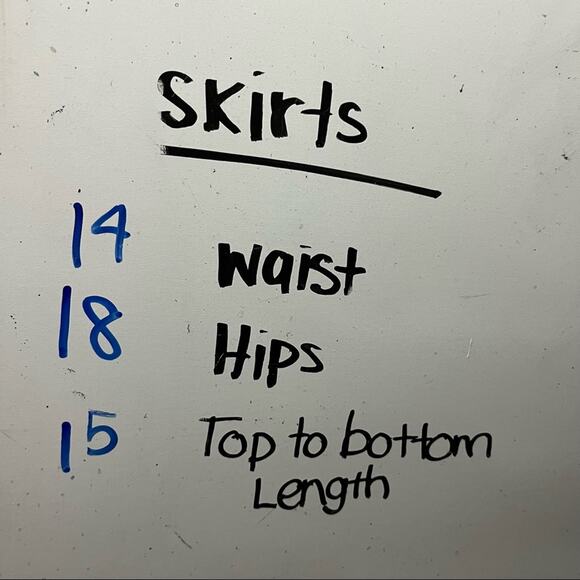 Skirts
14 Waist
18 Hips
15 Top to bottom
Length